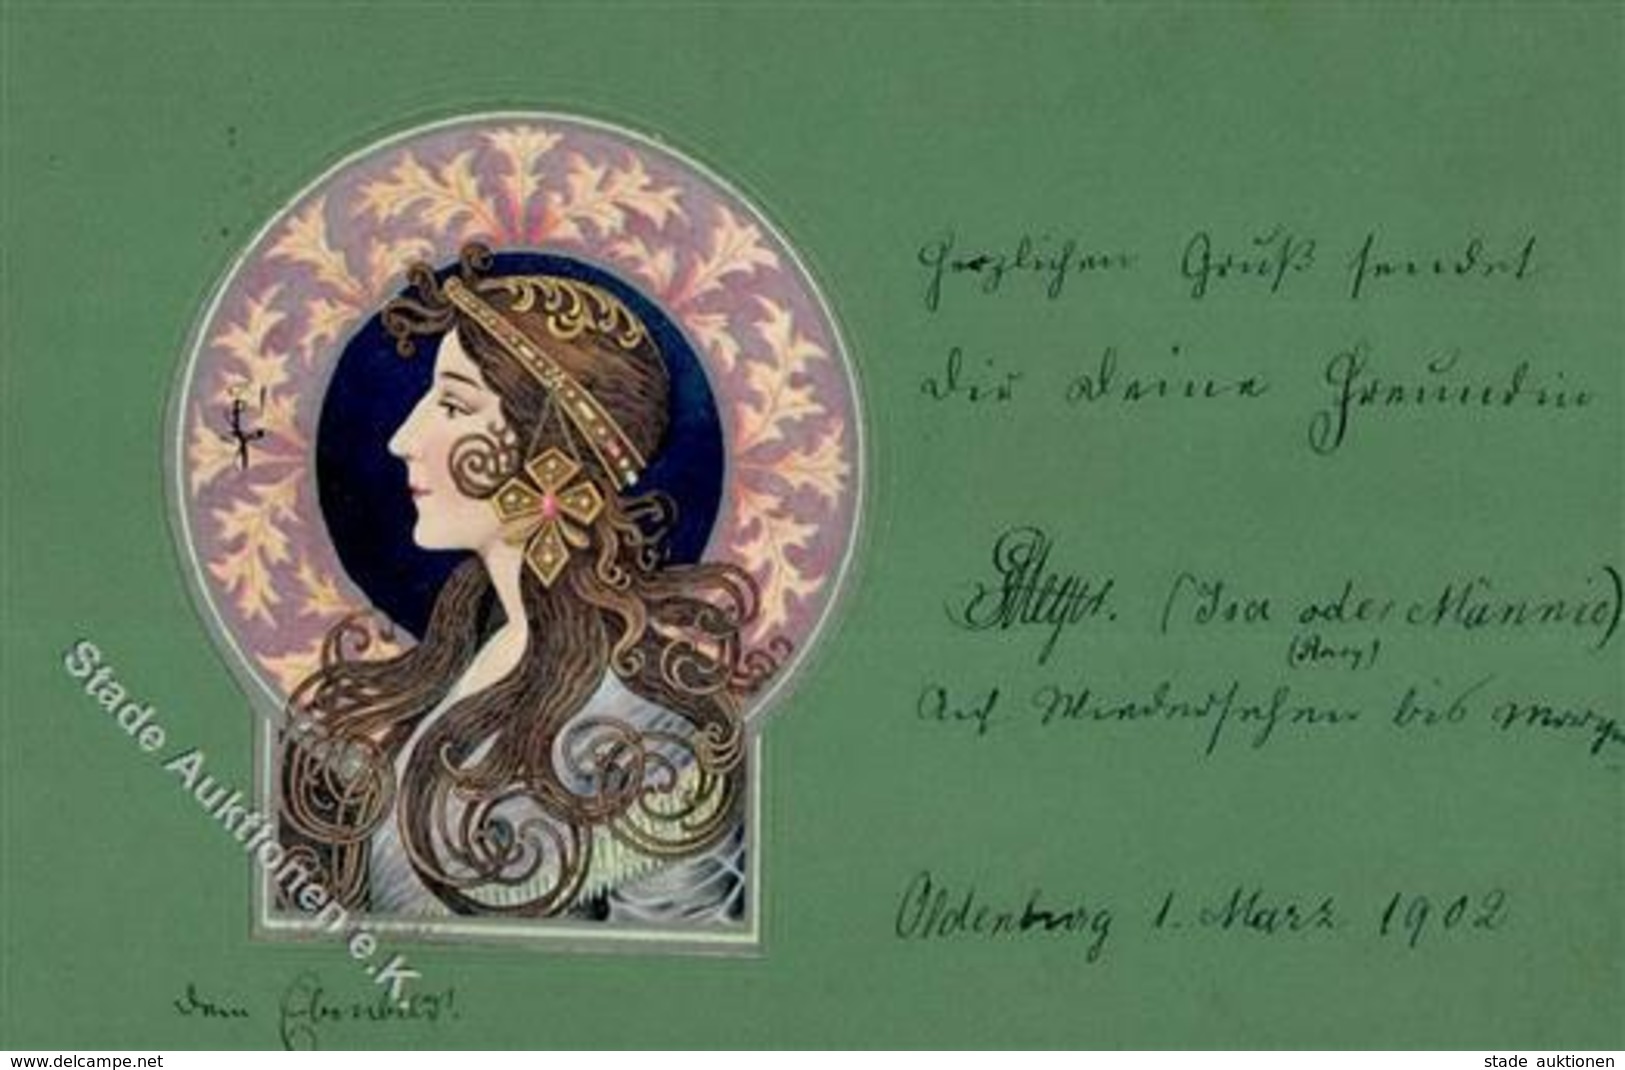 Herzlichen Gruß sendet
Dir Deine Freundin
(Isa oder Männie)
Auf Wiedersehen bis morgen
Oldenburg 1. März 1902
Dein Ebenbild!
Stade Auktionen e.K.
www.delcampe.net
stade auktionen